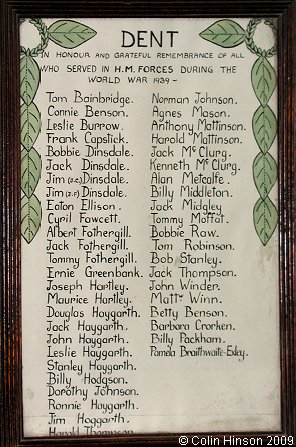 DENT
IN HONOUR AND GRATEFUL REMEMBRANCE OF ALL
WHO SERVED IN H.M. FORCES DURING THE
WORLD WAR 1939 ~
Tom Bainbridge.
Connie Benson.
Leslie Burrow.
Frank Capstick.
Bobbie Dinsdale.
Jack Dinsdale.
Jim Dinsdale.
Jim Dinsdale.
Eaton Ellison.
Cyril Fawcett.
Albert Fothergill.
Jack Fothergill.
Tommy Fothergill.
Ernie Greenbank.
Joseph Hartley.
Maurice Hartley.
Douglas Haygarth.
Jack Haygarth.
John Haygarth.
Leslie Haygarth.
Stanley Haygarth.
Billy Hodgson.
Dorothy Johnson.
Ronnie Haygarth.
Jim Haggarth.
Harold Thompson
Norman Johnson.
Agnes Mason.
Anthony Mattinson.
Harold Mattinson.
Jack Mc Clurg.
Kenneth Mc Clurg.
Alan Metcalfe.
Billy Middleton.
Jack Midgley
Tommy Moffat.
Bobbie Raw.
Tom Robinson.
Bob Stanley.
Jack Thompson.
John Winder.
Matt Winn.
Betty Benson.
Barbara Crorken.
Billy Packham.
Pamela Braithwaite-Exley.
© Colin Hinson 2009